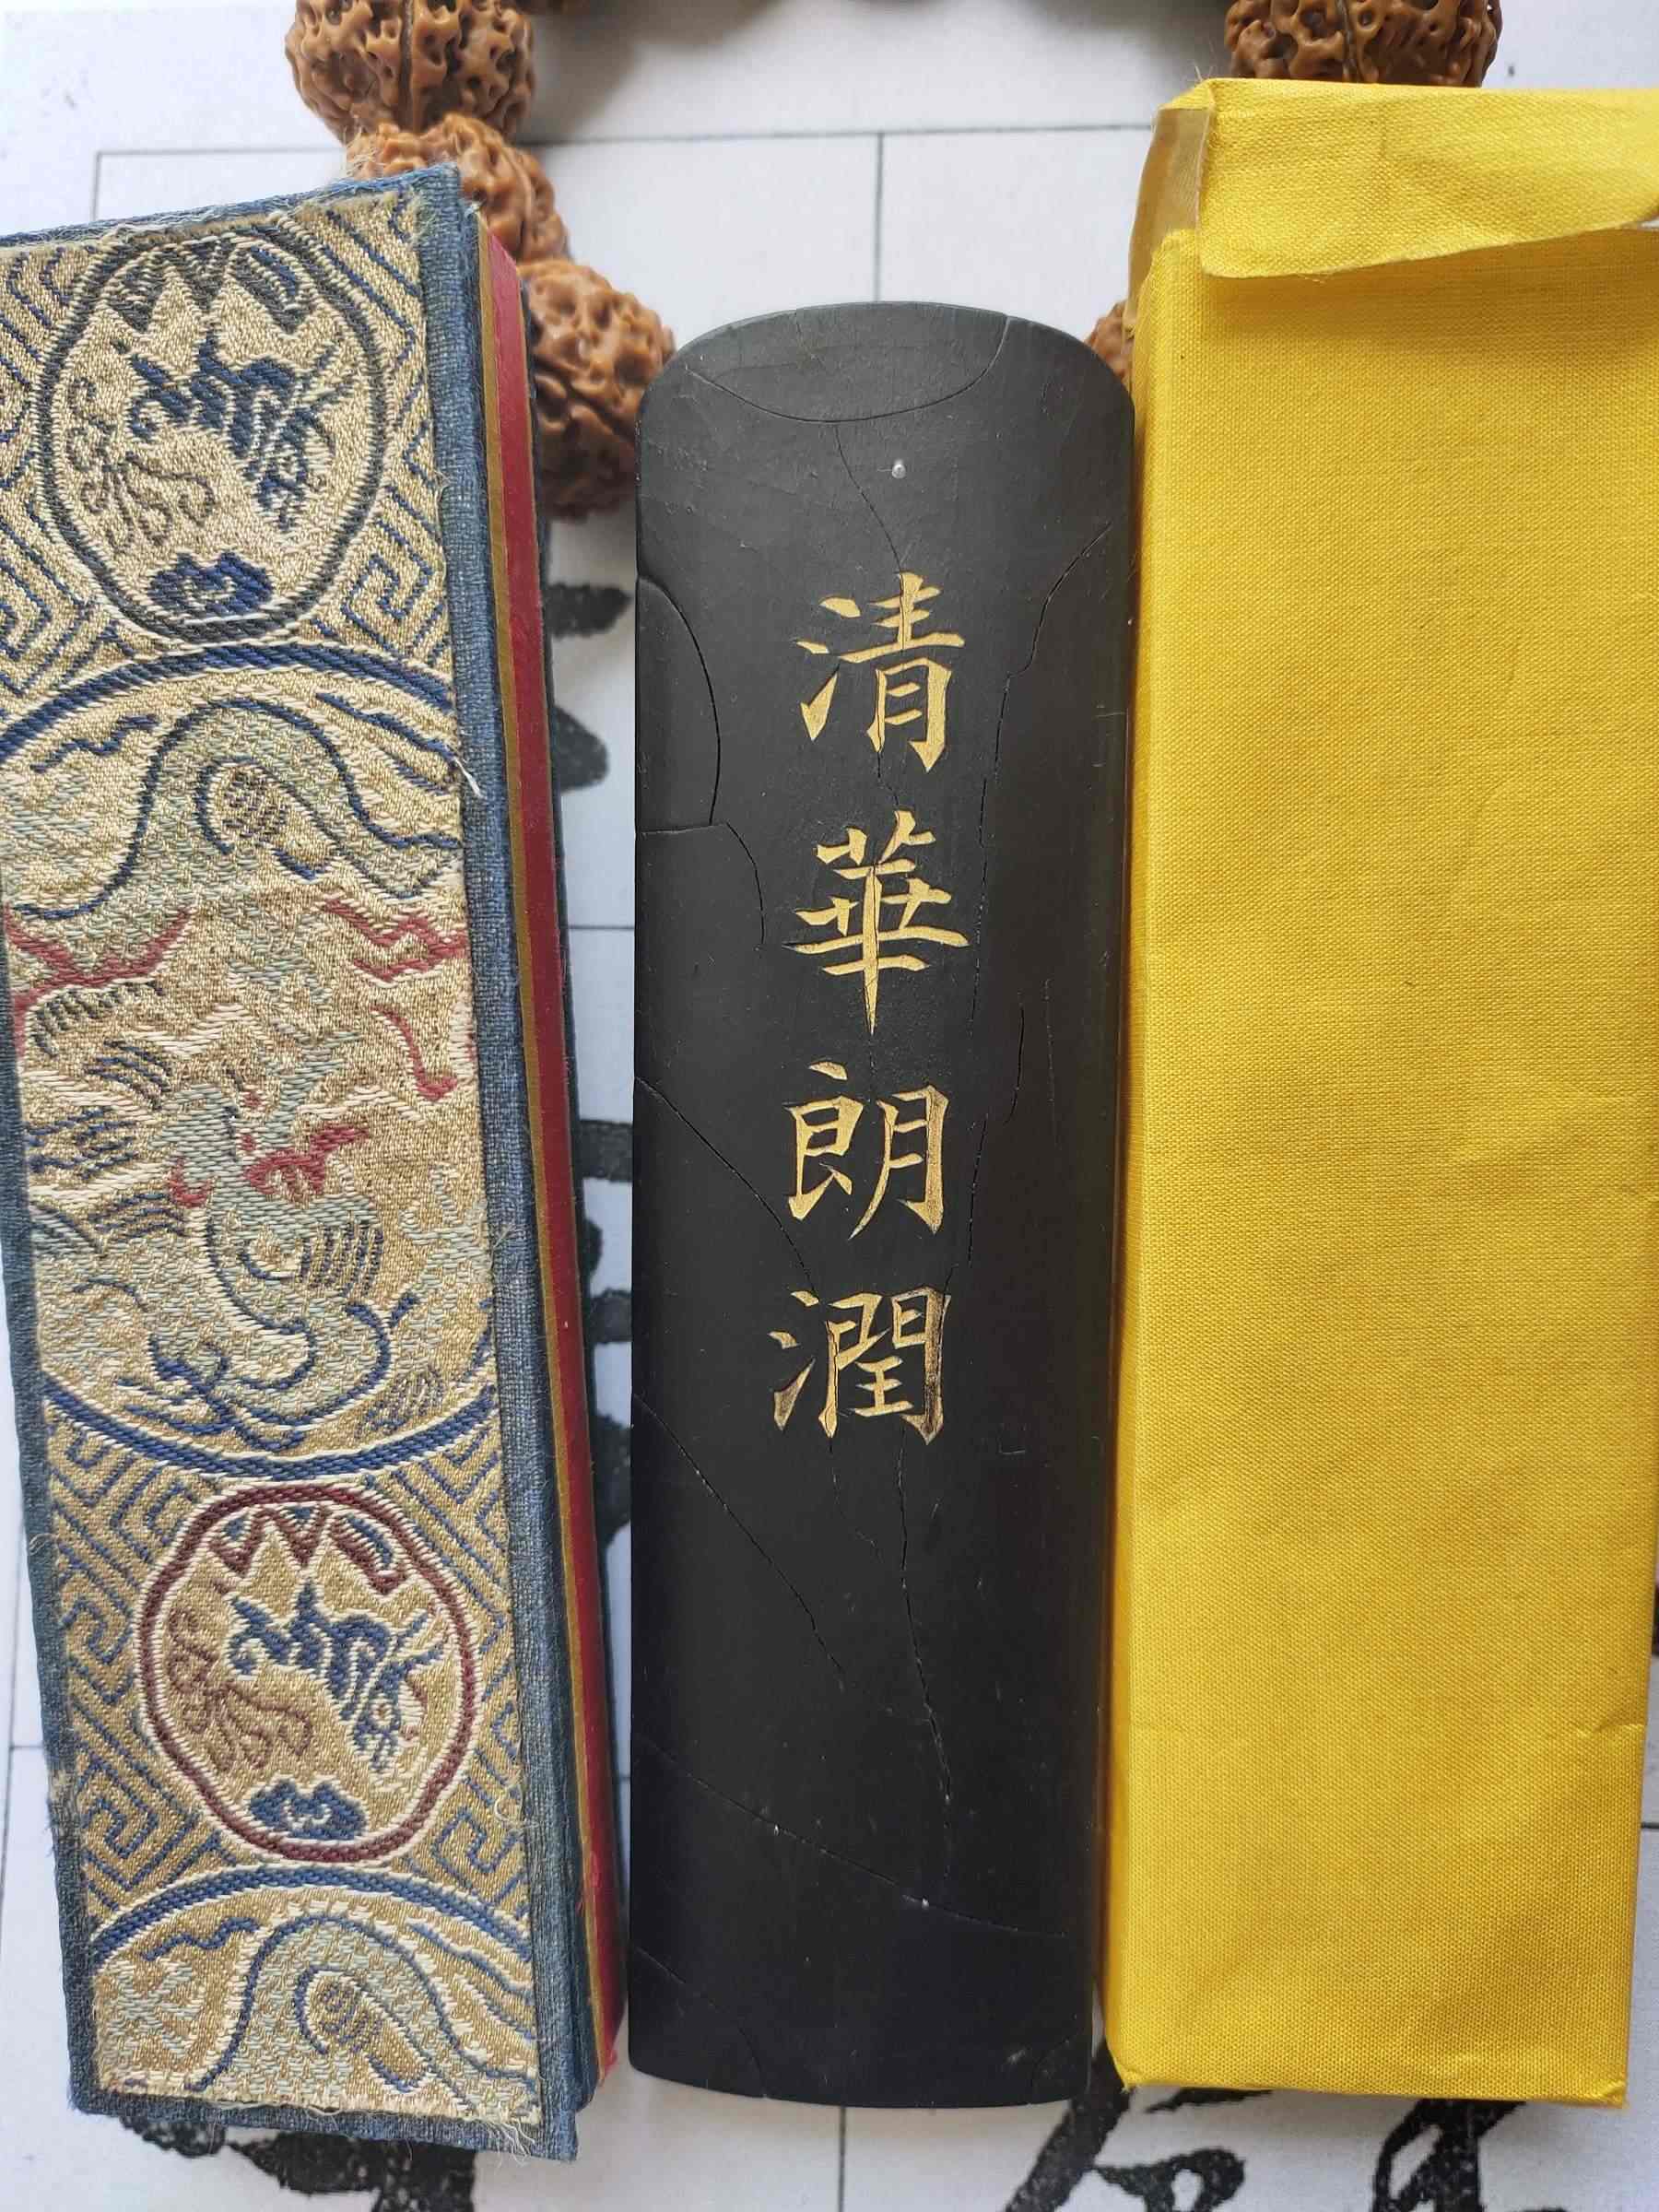 清華朗潤